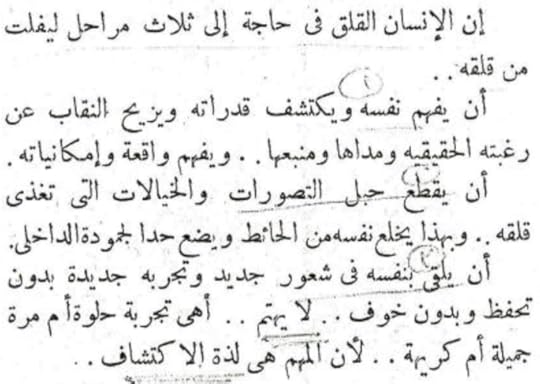 إن الإنسان القلق فى حاجة إلى ثلاث مراحل ليفلت
من قلقه . .
١
أن يفهم نفسه ويكتشف قدراته ويزيح النقاب عن
رغبته الحقيقيه ومداها ومنبعها . . ويفهم واقعة وإمكانياته .
أن يقطع حبل التصورات والخيالات التى تغذى
قلقه . . وبهذا يخلع نفسه من الحائط ويضع حدا لجمودة الداخلى .
أن يلقى بنفسه فى شعور جديد وتجربه جديدة بدون
تحفظ وبدون خوف . . لا يهتم . . أهى تجربة حلوة أم مرة
جميلة أم كريهة . . لأن المهم هى لذة الاكتشاف . .